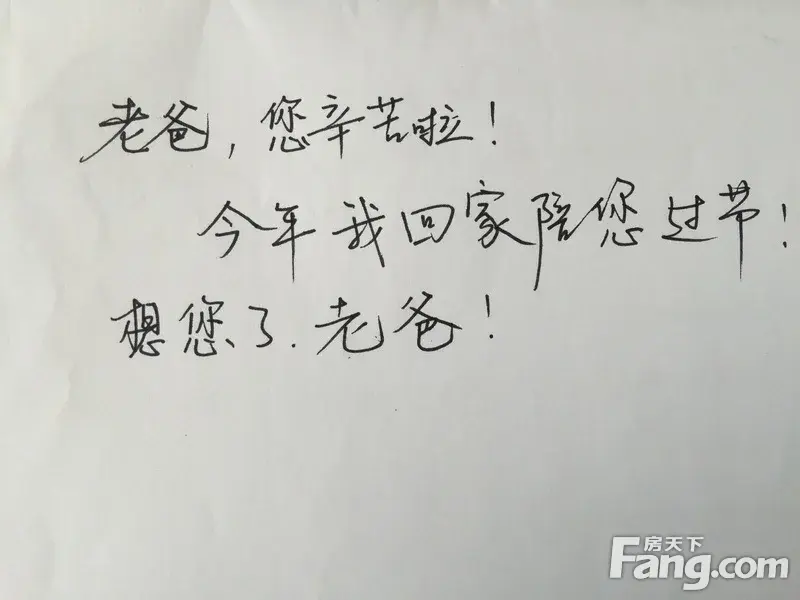 老爸，您辛苦啦！
今年我回家陪您过节！
想您了.老爸！
房天下
Fang.com